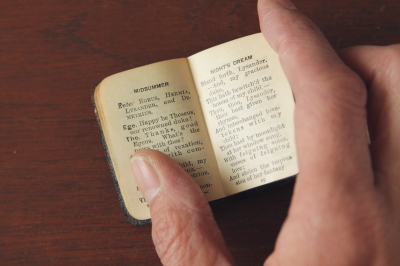 MIDSUMMER
Enter EGEUS, HERMIA,
LYSANDER, and DE-
METRIUS.
Ege. Happy be Theseus,
our renowned duke!
The. Thanks, good
Egeus. What's the
news with thee?
of vexation,
with com-
child, my
NIGHT'S DREAM
Stand forth, Lysander;
and, my gracious
duke,
This hath bewitch'd the
bosom of my child:—
Thou, thou, Lysander,
thou hast given her
rhymes,
And interchanged love-
tokens with my
child:
Thou hast by moonlight
at her window sung,
With feigning voice,
verses of feigning
love;
And stolen the impres-
sion of her fantasy